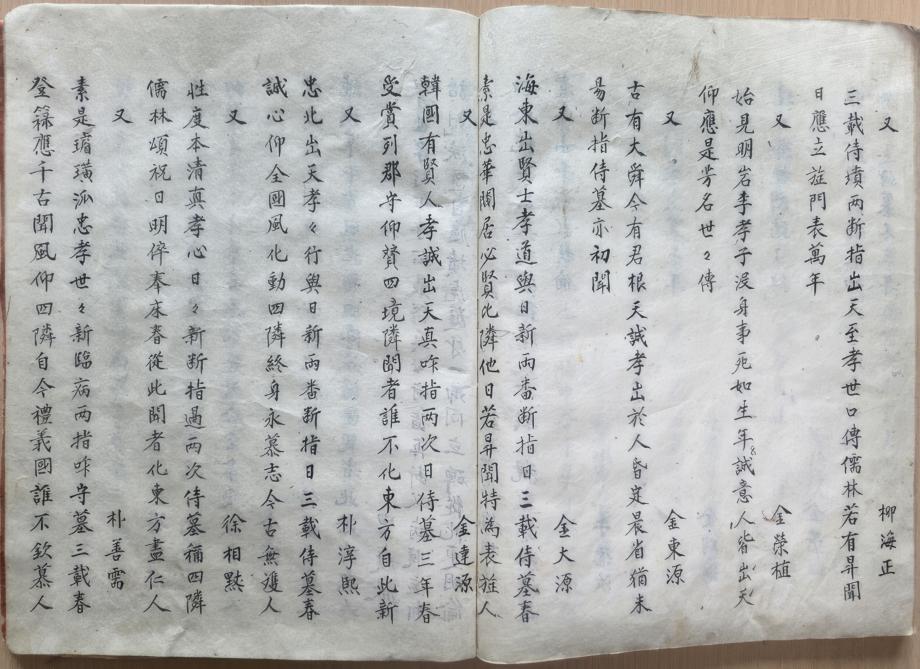 又 柳海正
三載侍墳両断指出天至孝世口傳儒林若有昇聞
日應立旌門表萬年
又 金榮植
始見明岩李孝子沒身事死如生年々誠意人皆出天
仰應是芳名世々傳
又 金東源
古有大舜今有君根天誠孝出於人昏定晨省猶未
易断指侍墓亦初聞
又 金大源
海東出賢士孝道與日新両畨断指日三載侍墓春
素是忠華閥居必賢比隣他日若昇聞特為表旌人
又 金達源
韓國有賢人孝誠出天真咋指两次日侍墓三年春
受賞列郡守仰賛四境隣聞者誰不化東方自此新
又 朴淳熙
忠北出天孝々行與日新両畨断指日三載侍墓春
誠心仰全國風化動四隣終身永慕志今古無雙人
又 徐相默
性度本清真孝心日々新断指過两次侍墓稱四隣
儒林頌祝日明倅奉床春從此聞者化東方盡仁人
又 朴善需
素是璿璜派忠孝世々新臨病两指咋守墓三載春
登籙應千古聞風仰四隣自今禮義國誰不欽慕人